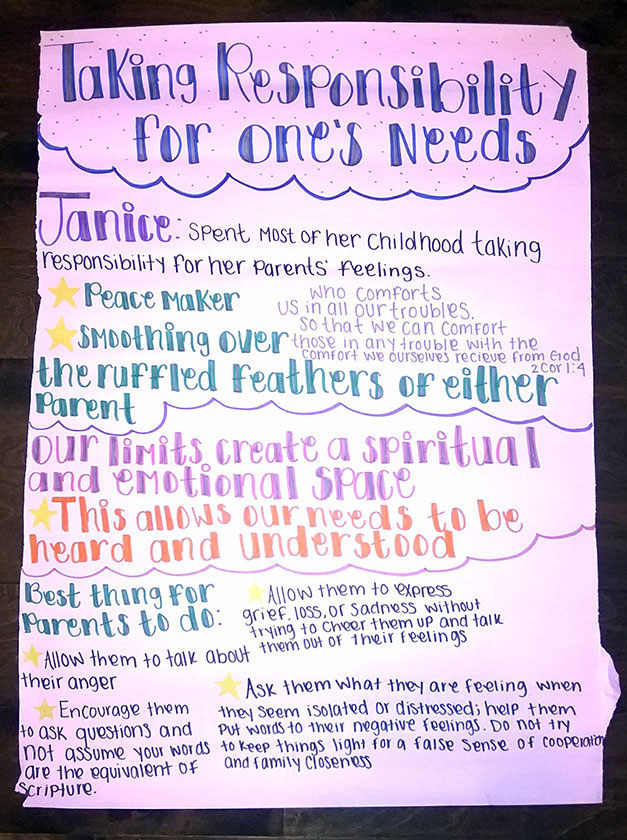 Taking Responsibility
for one's Needs
Janice: Spent Most of her childhood taking
responsibility for her parents' feelings.
Peace Maker
Smoothing over
the ruffled feathers of either
Parent
who comforts
us in all our troubles,
so that we can comfort
those in any trouble with the
comfort we ourselves recieve from God
2 Cor 1:4
Our limits create a spiritual
and emotional space
This allows our needs to be
heard and understood
Best thing for
Parents to do:
Allow them to express
grief, loss, or sadness without
trying to cheer them up and talk
them out of their feelings
Allow them to talk about
their anger
Encourage them
to ask questions and
not assume your words
are the equivalent of
Scripture.
Ask them what they are feeling when
they seem isolated or distressed; help them
Put words to their negative feelings. Do not try
to keep things light for a false sense of cooperation
and family closeness